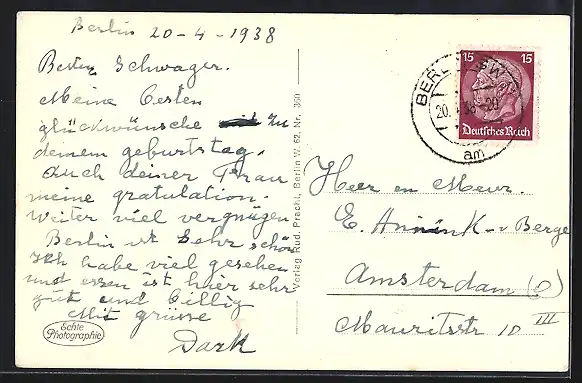 Berlin 20-4-1938
Besten Schwager.
Meine besten
glückwünsche zu
deinem geburtstag.
Auch deiner Frau
meine gratulation.
Weiter viel vergnügen
Berlin ist Sehr schön
Ich habe viel gesehen
und essen ist hier sehr
gut und billig
Mit grüsse
Echte
Photographie
Verlag Rud. Pracht, Berlin W. 62, Nr. 360
BERLIN SW
20. 38 -20
am
15 15
Deutsches Reich
Heer en Mevr.
v Berge
Amsterdam (O)
Mauritsstr 10 III